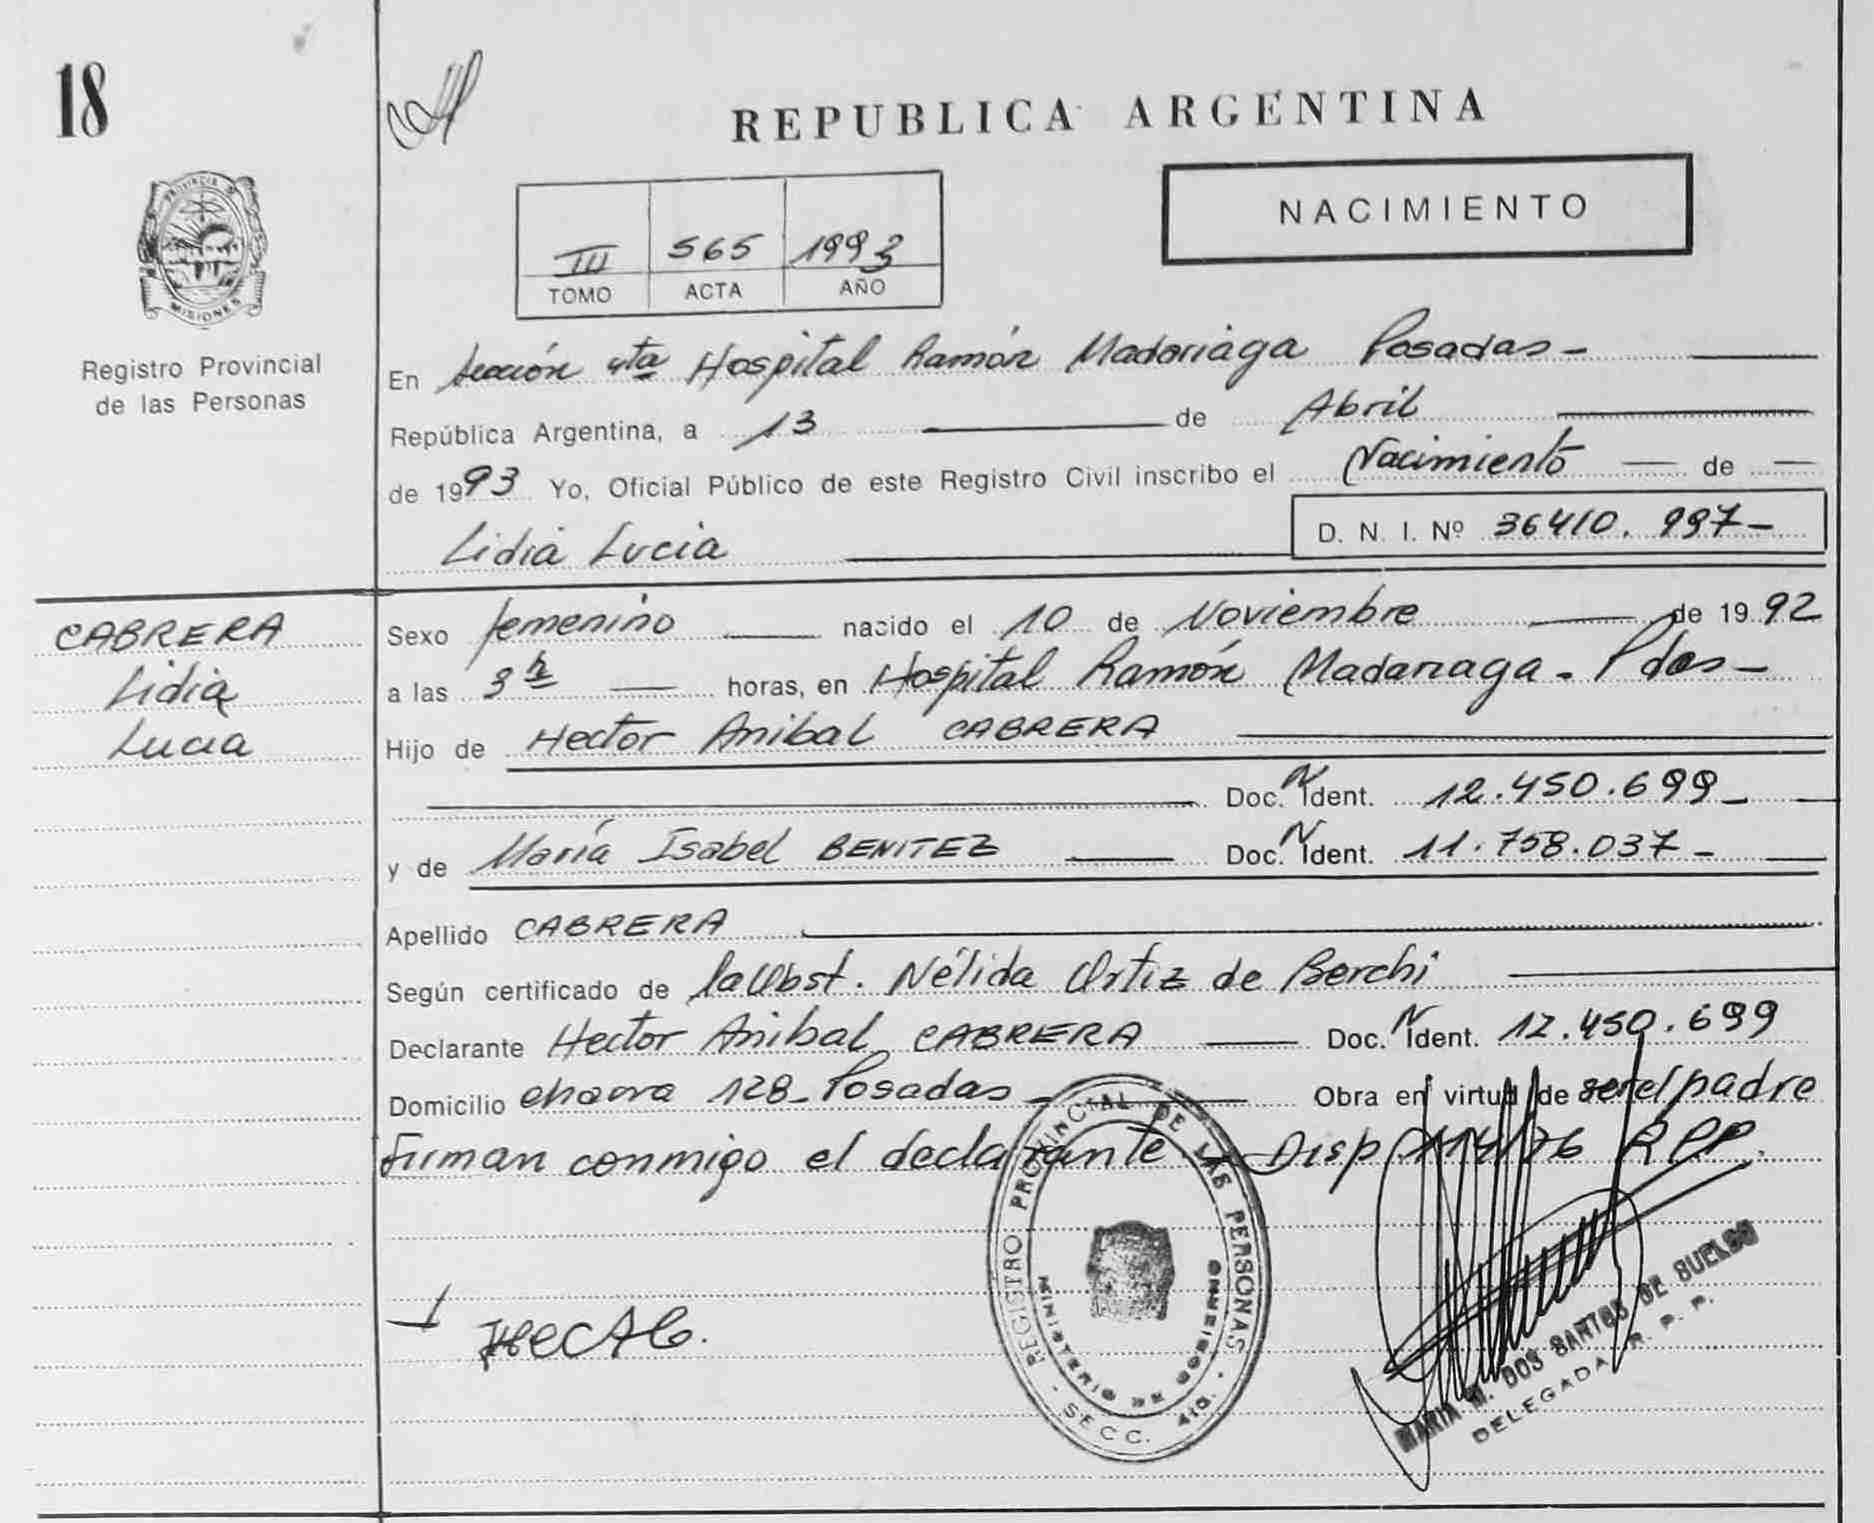 18
REPUBLICA ARGENTINA
NACIMIENTO
III 565 1993
TOMO ACTA AÑO
PROVINCIA DE
MISIONES
Registro Provincial
de las Personas
En Sección 4ta Hospital Ramón Madariaga Posadas -
República Argentina, a 13 de Abril
de 1993 Yo, Oficial Público de este Registro Civil inscribo el Nacimiento de
Lidia Lucia D. N. I. Nº 36410.997-
CABRERA
Lidia
Lucia
Sexo femenino nacido el 10 de Noviembre de 1992
a las 3h horas, en Hospital Ramón Madariaga - Pdas -
Hijo de Hector Anibal CABRERA
Doc. N Ident. 12.450.699 -
y de María Isabel BENITEZ Doc. N Ident. 11.758.037 -
Apellido CABRERA
Según certificado de la Obst. Nélida Ortiz de Berchi
Declarante Hector Anibal CABRERA Doc. N Ident. 12.450.699
Domicilio chacra 128 - Posadas - Obra en virtud de ser el padre
Firman conmigo el declarante - Disp 114/76 RPP.
REGISTRO PROVINCIAL DE LAS PERSONAS
MINISTERIO DE GOBIERNO
SECC. 4ta.
MARIA M. DOS SANTOS DE SUELDO
DELEGADA R. P. P.